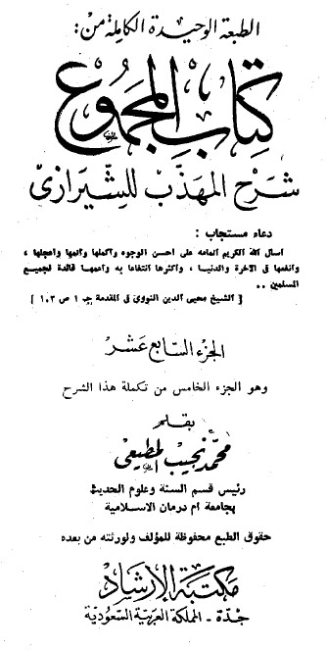 الطبعة الوحيدة الكاملة من:
كتاب المجموع
شرح المهذب للشيرازى
دعاء مستجاب :
اسال الله الكريم اتمامه على احسن الوجوه واكملها واتمها واعجلها ،
وانفعها فى الآخرة والدنيا ، واكثرها انتفاعا به واعمها فائدة لجميع
المسلمين ..
[ الشيخ محيى الدين النووى فى المقدمة جـ ١ ص ١٠٢ ]
الجزء السابع عشر
وهو الجزء الخامس من تكملة هذا الشرح
بقلم
محمد نجيب المطيعى
رئيس قسم السنة وعلوم الحديث
بجامعة ام درمان الاسلامية
حقوق الطبع محفوظة للمؤلف ولورثته من بعده
مكتبة الإرشاد
جدة - المملكة العربية السعودية